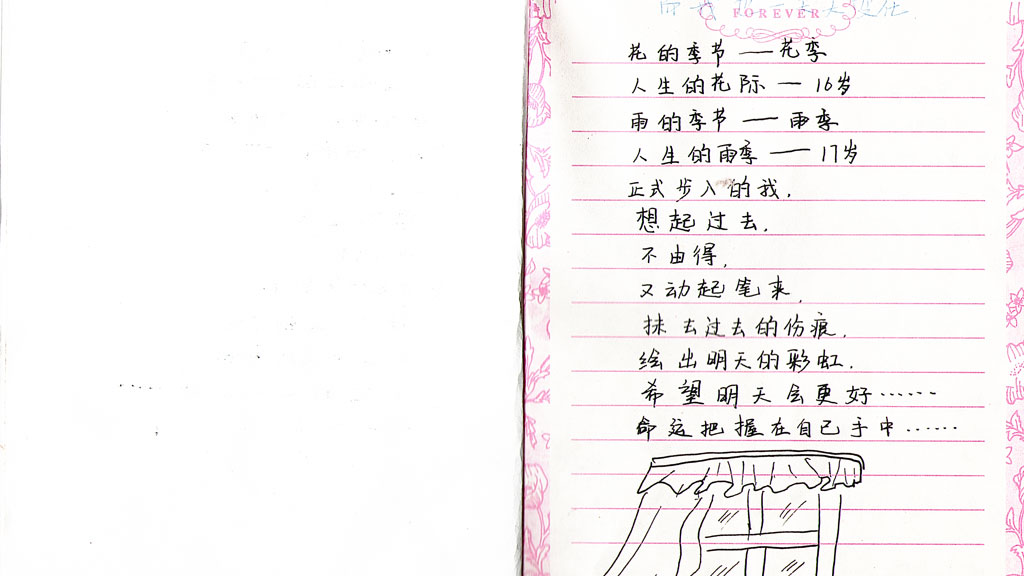 FOREVER
花的季节——花季
人生的花际—16岁
雨的季节——雨季
人生的雨季——17岁
正式步入的我.
想起过去.
不由得,
又动起笔来,
抹去过去的伤痕.
绘出明天的彩虹.
希望明天会更好……
命运把握在自己手中……